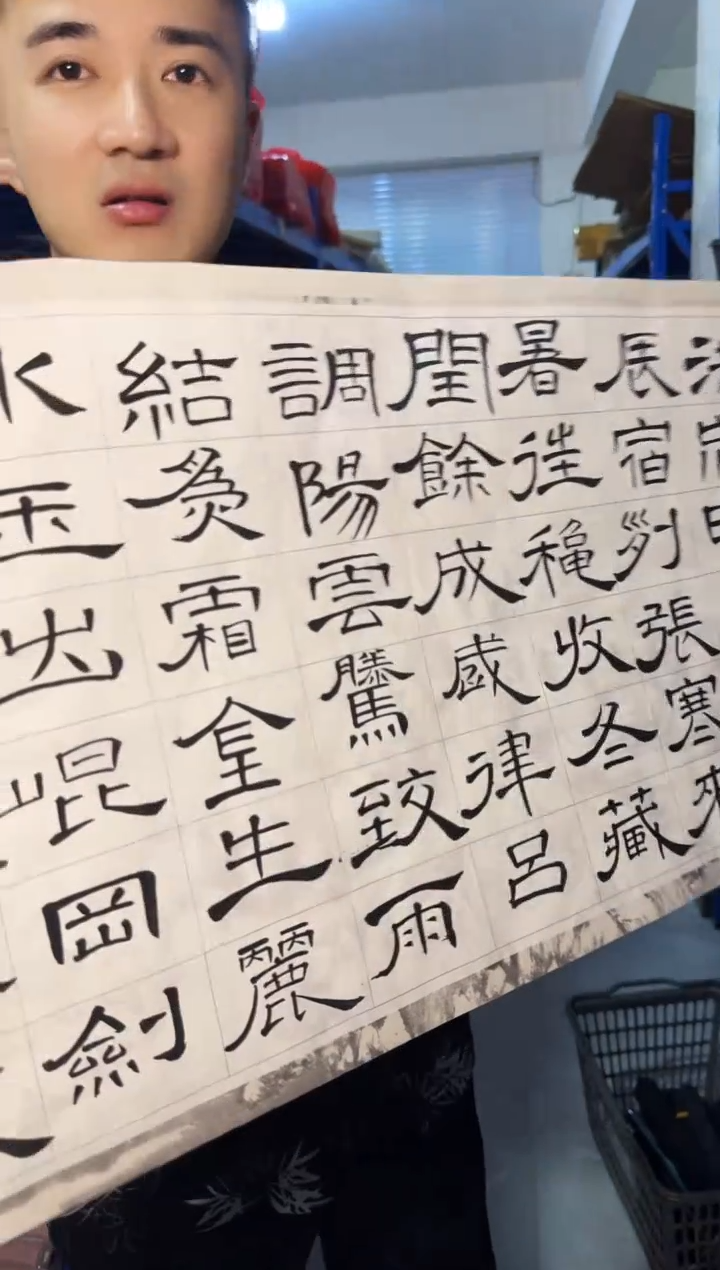 辰宿列張寒來
暑徃穐收冬藏
閏餘成歲律呂
調陽雲騰致雨
結爲霜金生麗
水玉出崐岡劍